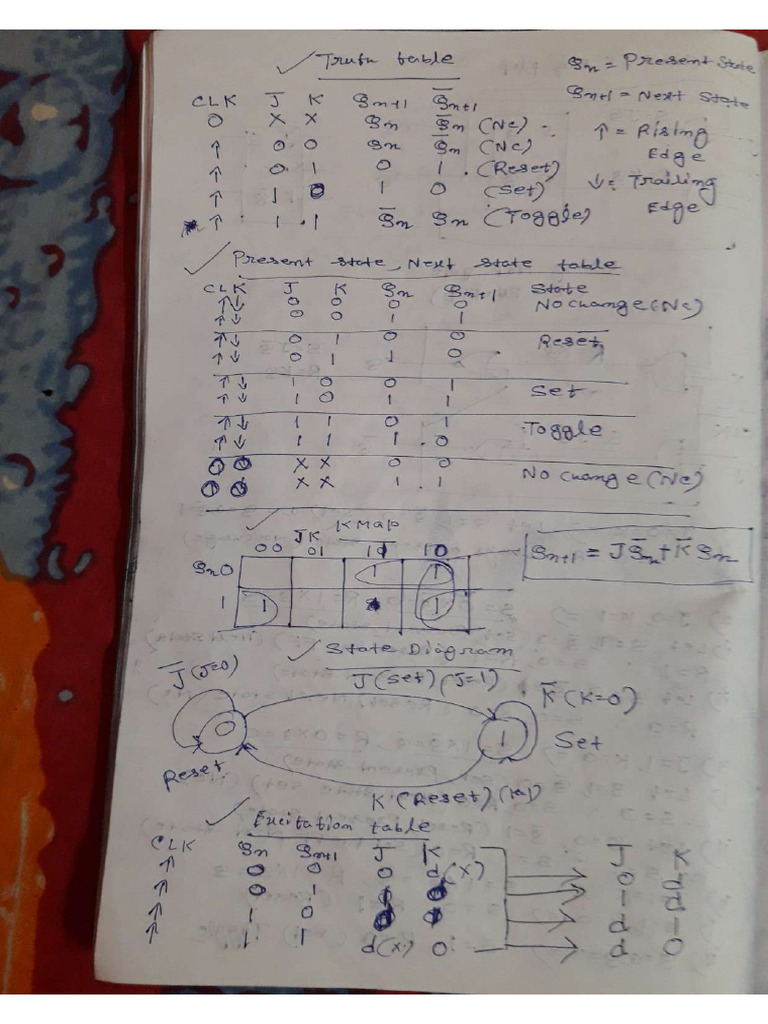 ✓ Truth table
Qn = Present State
Qn+1 = Next State
↑ = Rising Edge
↓ = Trailing Edge
CLK J K Qn+1 Q̅n+1
0 X X Qn Q̅n (NC)
↑ 0 0 Qn Q̅n (NC)
↑ 0 1 0 1 (Reset)
↑ 1 0 1 0 (Set)
↑ 1 1 Q̅n Qn (Toggle)
✓ Present state, Next state table
CLK J K Qn Qn+1 State
↑↓ 0 0 0 0 No change (NC)
↑↓ 0 0 1 1
↑↓ 0 1 0 0 Reset
↑↓ 0 1 1 0
↑↓ 1 0 0 1 Set
↑↓ 1 0 1 1
↑↓ 1 1 0 1 Toggle
↑↓ 1 1 1 0
X X 0 0 No change (NC)
X X 1 1
✓ K Map
JK
00 01 11 10
Qn 0 1 1
1 1 1
Qn+1 = JQ̅n + K̅Qn
✓ State Diagram
J̅ (J=0)
J (Set) (J=1)
K̅ (K=0)
0
1
Set
Reset
K (Reset)
✓ Excitation table
CLK Qn Qn+1 J K J K
↑ 0 0 0 d (X) 0 d
↑ 0 1 1 d
↑ 1 0 d 1
↑ 1 1 d(X) 0 d 0